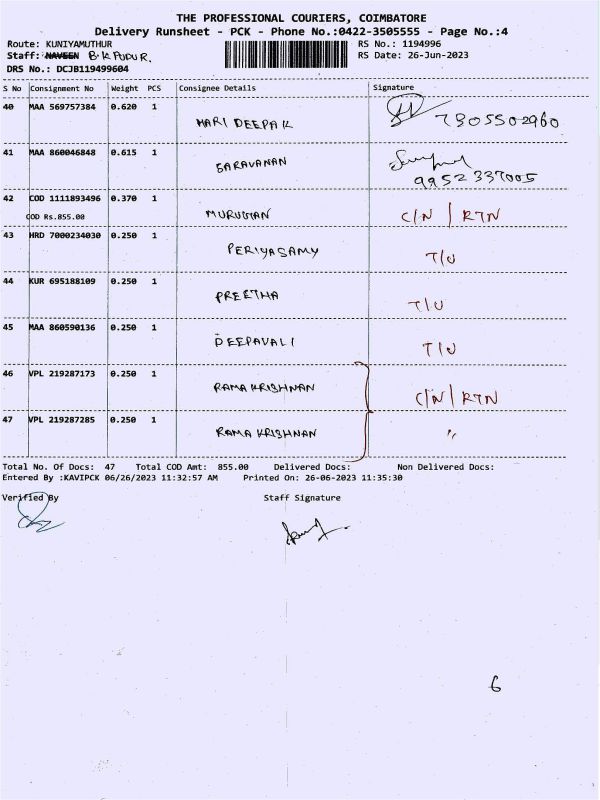 THE PROFESSIONAL COURIERS, COIMBATORE
Delivery Runsheet - PCK - Phone No.:0422-3505555 - Page No.:4
Route: KUNIYAMUTHUR RS No.: 1194996
Staff: NAVEEN B.K PUDUR. RS Date: 26-Jun-2023
DRS No.: DCJB119499604
S No Consignment No Weight PCS Consignee Details Signature
40 MAA 569757384 0.620 1 HARI DEEPAK 7305502960
41 MAA 860046848 0.615 1 SARAVANAN 9952337005
42 COD 1111893496 0.370 1 MURUGAN C/N | RTN
COD Rs.855.00
43 HRD 7000234030 0.250 1 PERIYASAMY T/U
44 KUR 695188109 0.250 1 PREETHA T/U
45 MAA 860590136 0.250 1 DEEPAVALI T/U
46 VPL 219287173 0.250 1 RAMA KRISHNAN C/N | RTN
47 VPL 219287285 0.250 1 RAMA KRISHNAN "
Total No. Of Docs: 47 Total COD Amt: 855.00 Delivered Docs: Non Delivered Docs:
Entered By :KAVIPCK 06/26/2023 11:32:57 AM Printed On: 26-06-2023 11:35:30
Verified By Staff Signature
6